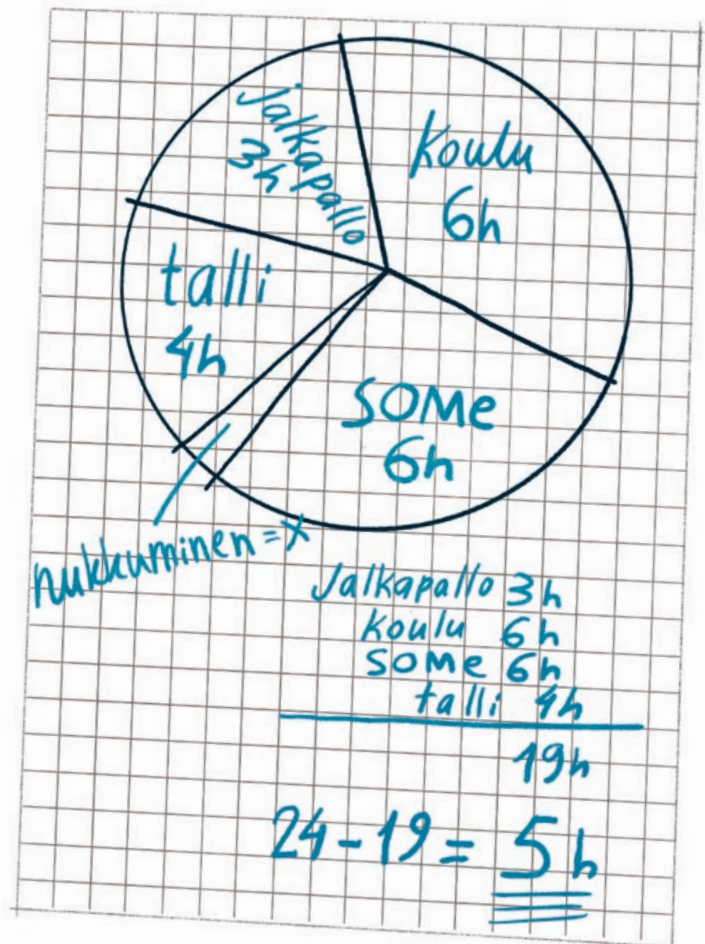 jalkapallo
3h
Koulu
6h
talli
4h
SOMe
6h
nukkuminen = x
Jalkapallo 3h
Koulu 6h
SOMe 6h
talli 4h
19h
24-19 = 5h